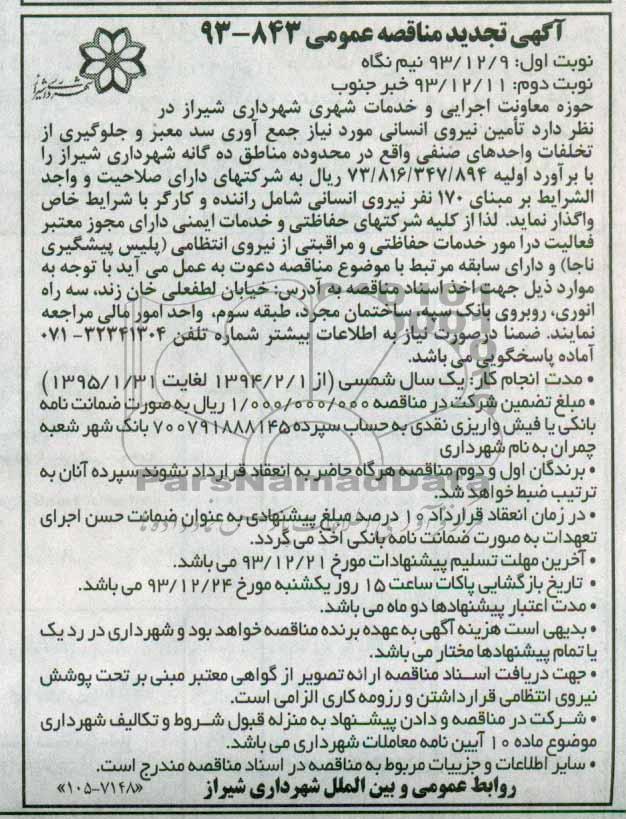 آگهی تجدید مناقصه عمومی ۸۴۳-۹۳
نوبت اول: ۹۳/۱۲/۹ نیم نگاه
نوبت دوم: ۹۳/۱۲/۱۱ خبر جنوب
شهرداری شیراز
حوزه معاونت اجرایی و خدمات شهری شهرداری شیراز در
نظر دارد تأمین نیروی انسانی مورد نیاز جمع آوری سد معبر و جلوگیری از
تخلفات واحدهای صنفی واقع در محدوده مناطق ده گانه شهرداری شیراز را
با برآورد اولیه ۷۳/۸۱۶/۳۴۷/۸۹۴ ریال به شرکتهای دارای صلاحیت و واجد
الشرایط بر مبنای ۱۷۰ نفر نیروی انسانی شامل راننده و کارگر با شرایط خاص
واگذار نماید. لذا از کلیه شرکتهای حفاظتی و خدمات ایمنی دارای مجوز معتبر
فعالیت درامور خدمات حفاظتی و مراقبتی از نیروی انتظامی (پلیس پیشگیری
ناجا) و دارای سابقه مرتبط با موضوع مناقصه دعوت به عمل می آید با توجه به
موارد ذیل جهت اخذ اسناد مناقصه به آدرس: خیابان لطفعلی خان زند، سه راه
انوری، روبروی بانک سپه، ساختمان مجرد، طبقه سوم، واحد امور مالی مراجعه
نمایند. ضمنا درصورت نیاز به اطلاعات بیشتر شماره تلفن ۳۲۳۴۱۳۰۴-۰۷۱
آماده پاسخگویی می باشد.
• مدت انجام کار: یک سال شمسی (از ۱۳۹۴/۲/۱ لغایت ۱۳۹۵/۱/۳۱)
• مبلغ تضمین شرکت در مناقصه ۱/۰۰۰/۰۰۰/۰۰۰ ریال به صورت ضمانت نامه
بانکی یا فیش واریزی نقدی به حساب سپرده ۷۰۰۷۹۱۸۸۸۱۴۵ بانک شهر شعبه
چمران به نام شهرداری
• برندگان اول و دوم مناقصه هرگاه حاضر به انعقاد قرارداد نشوند سپرده آنان به
ترتیب ضبط خواهد شد.
• در زمان انعقاد قرارداد ۱۰ درصد مبلغ پیشنهادی به عنوان ضمانت حسن اجرای
تعهدات به صورت ضمانت نامه بانکی اخذ می گردد.
• آخرین مهلت تسلیم پیشنهادات مورخ ۹۳/۱۲/۲۱ می باشد.
• تاریخ بازگشایی پاکات ساعت ۱۵ روز یکشنبه مورخ ۹۳/۱۲/۲۴ می باشد.
• مدت اعتبار پیشنهادها دو ماه می باشد.
• بدیهی است هزینه آگهی به عهده برنده مناقصه خواهد بود و شهرداری در رد یک
یا تمام پیشنهادها مختار می باشد.
• جهت دریافت اسناد مناقصه ارائه تصویر از گواهی معتبر مبنی بر تحت پوشش
نیروی انتظامی قرارداشتن و رزومه کاری الزامی است.
• شرکت در مناقصه و دادن پیشنهاد به منزله قبول شروط و تکالیف شهرداری
موضوع ماده ۱۰ آیین نامه معاملات شهرداری می باشد.
• سایر اطلاعات و جزییات مربوط به مناقصه در اسناد مناقصه مندرج است.
روابط عمومی و بین الملل شهرداری شیراز
«۱۰۵-۷۱۴۸»
ParsNamadData